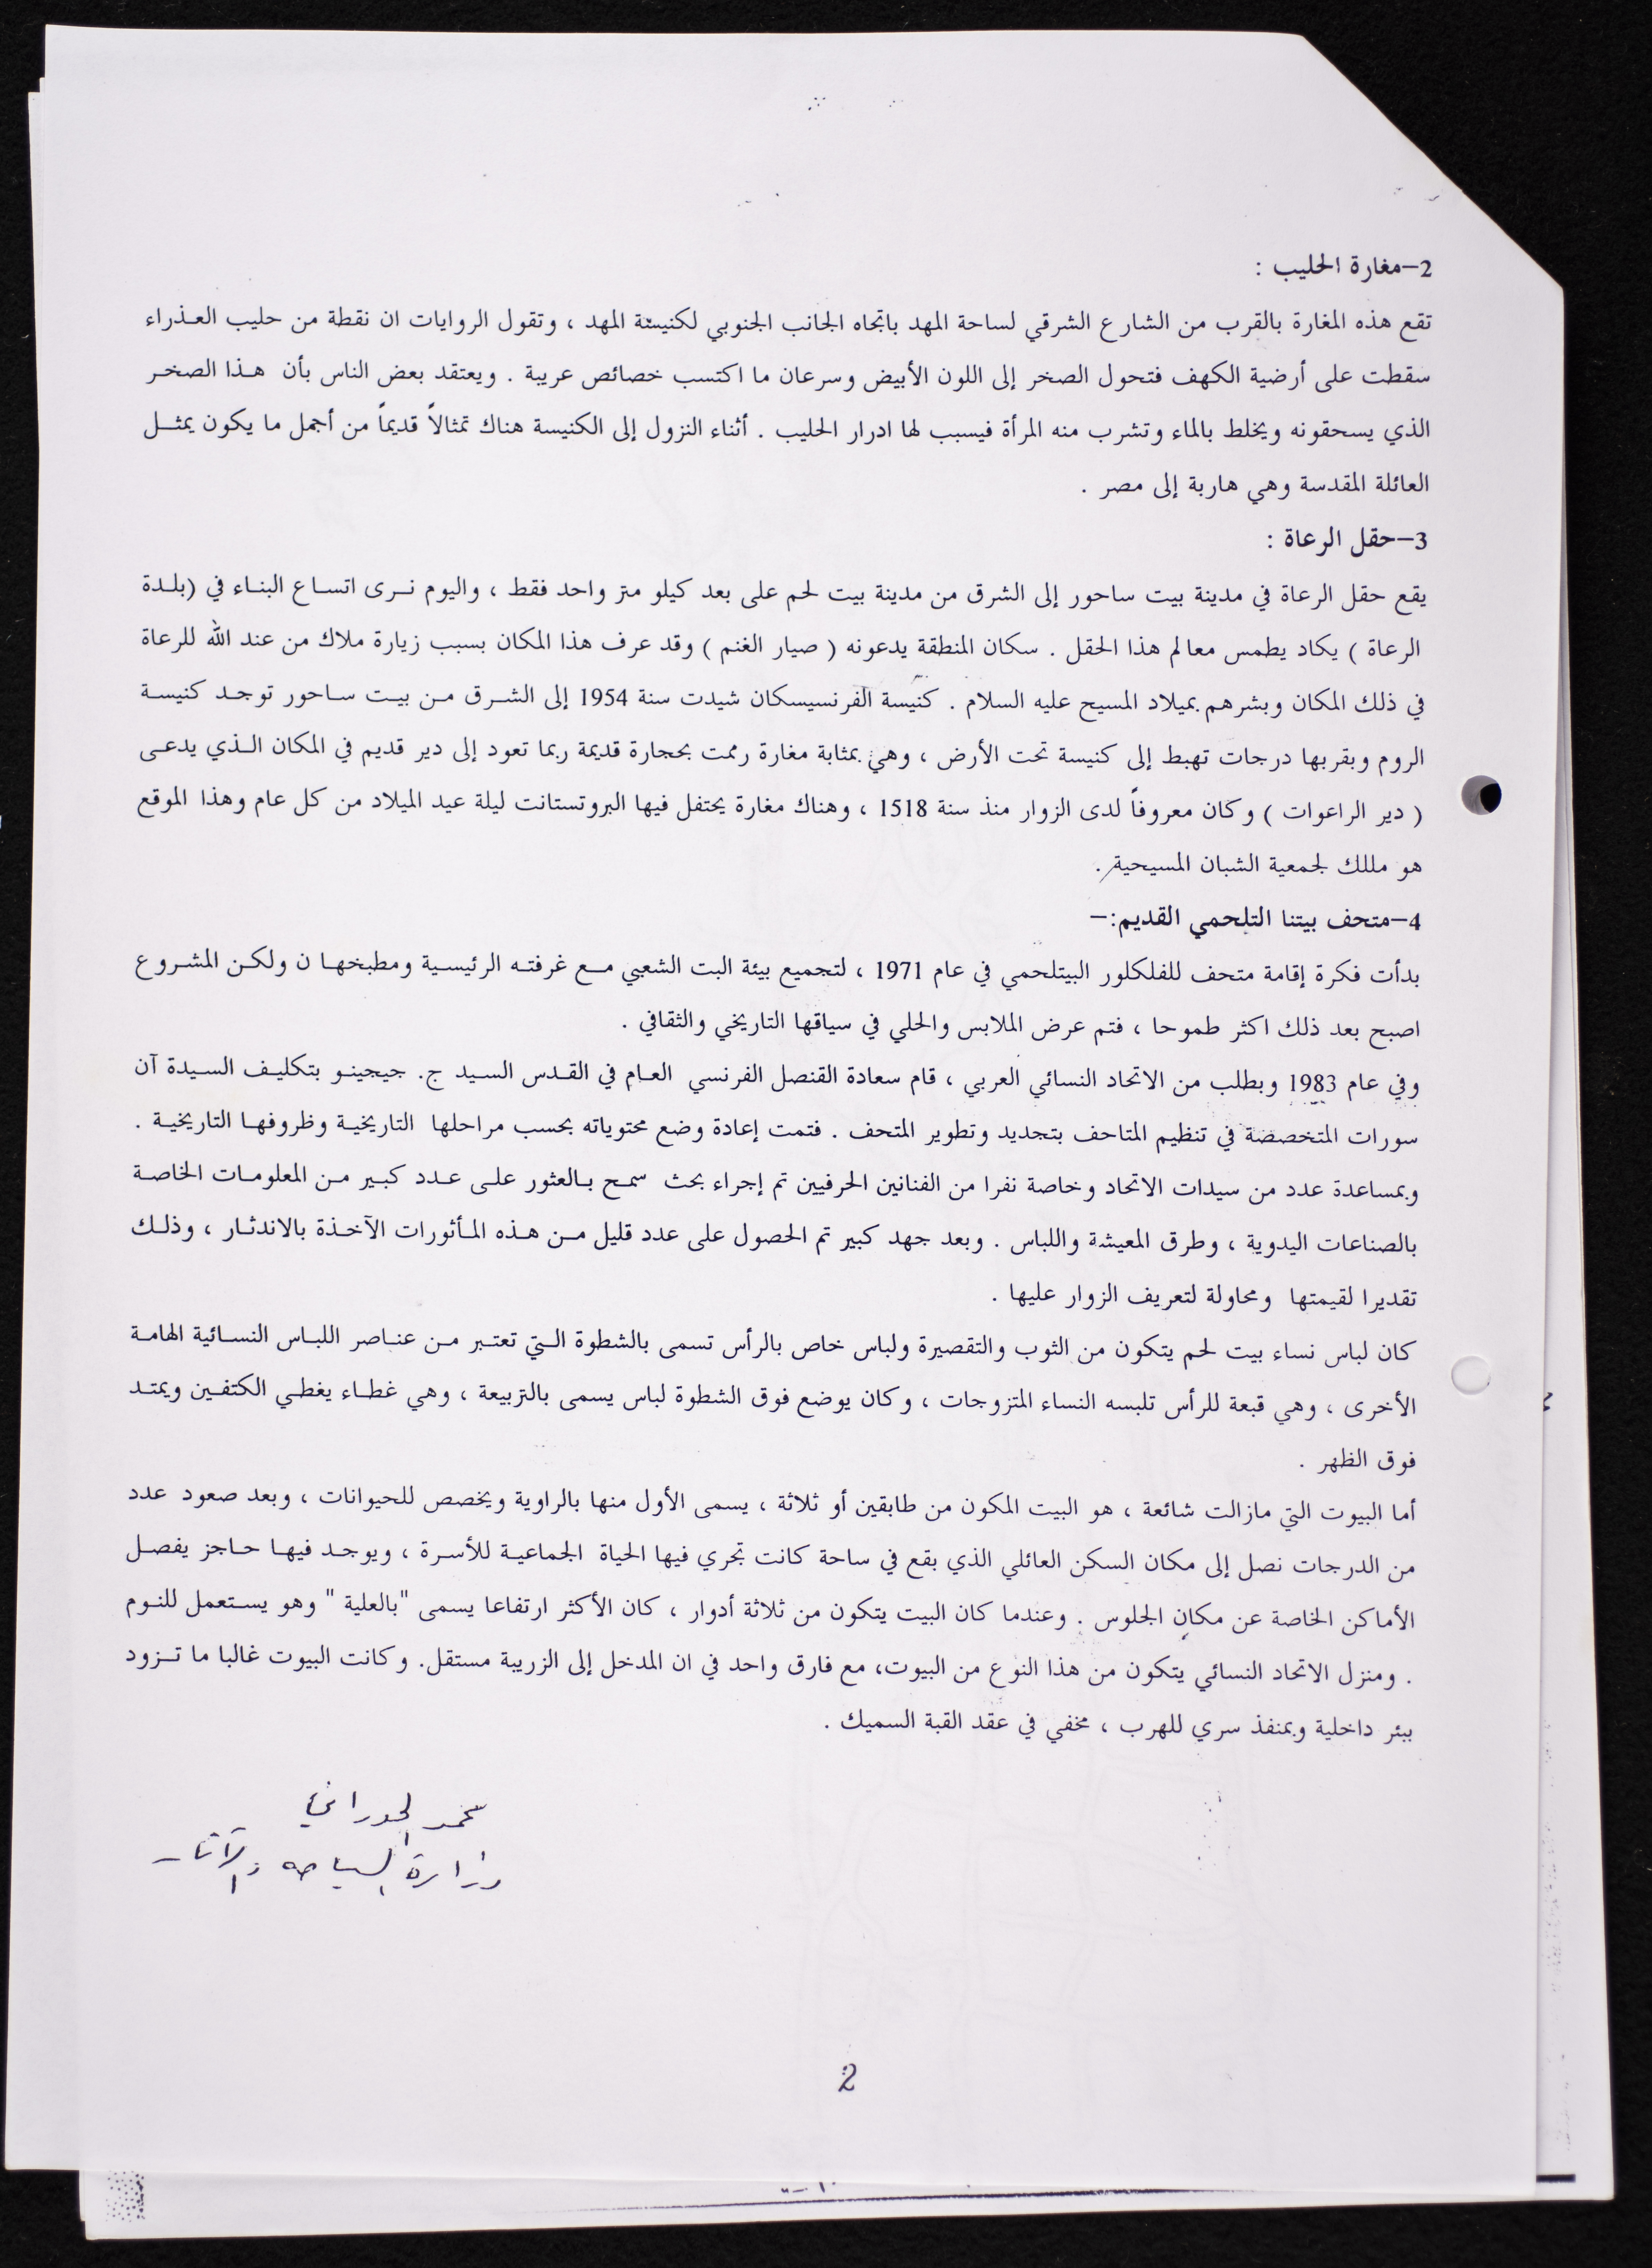 2–مغارة الحليب :
تقع هذه المغارة بالقرب من الشارع الشرقي لساحة المهد باتجاه الجانب الجنوبي لكنيسة المهد ، وتقول الروايات ان نقطة من حليب العذراء
سقطت على أرضية الكهف فتحول الصخر إلى اللون الأبيض وسرعان ما اكتسب خصائص عريبة . ويعتقد بعض الناس بأن هذا الصخر
الذي يسحقونه ويخلط بالماء وتشرب منه المرأة فيسبب لها ادرار الحليب . أثناء النزول إلى الكنيسة هناك تمثالاً قديماً من أجمل ما يكون يمثل
العائلة المقدسة وهي هاربة إلى مصر .
3–حقل الرعاة :
يقع حقل الرعاة في مدينة بيت ساحور إلى الشرق من مدينة بيت لحم على بعد كيلو متر واحد فقط ، واليوم نرى اتساع البناء في (بلدة
الرعاة ) يكاد يطمس معالم هذا الحقل . سكان المنطقة يدعونه ( صيار الغنم ) وقد عرف هذا المكان بسبب زيارة ملاك من عند الله للرعاة
في ذلك المكان وبشرهم بميلاد المسيح عليه السلام . كنيسة الفرنسيسكان شيدت سنة 1954 إلى الشرق من بيت ساحور توجد كنيسة
الروم وبقربها درجات تهبط إلى كنيسة تحت الأرض ، وهي بمثابة مغارة رممت بحجارة قديمة ربما تعود إلى دير قديم في المكان الذي يدعى
( دير الراعوات ) وكان معروفاً لدى الزوار منذ سنة 1518 ، وهناك مغارة يحتفل فيها البروتستانت ليلة عيد الميلاد من كل عام وهذا الموقع
هو مللك لجمعية الشبان المسيحية .
4–متحف بيتنا التلحمي القديم:–
بدأت فكرة إقامة متحف للفلكلور البيتلحمي في عام 1971 ، لتجميع بيئة البت الشعبي مع غرفته الرئيسية ومطبخها ن ولكن المشروع
اصبح بعد ذلك اكثر طموحا ، فتم عرض الملابس والحلي في سياقها التاريخي والثقافي .
وفي عام 1983 وبطلب من الاتحاد النسائي العربي ، قام سعادة القنصل الفرنسي العام في القدس السيد ج. جيجينو بتكليف السيدة آن
سورات المتخصصة في تنظيم المتاحف بتجديد وتطوير المتحف . فتمت إعادة وضع محتوياته بحسب مراحلها التاريخية وظروفها التاريخية .
وبمساعدة عدد من سيدات الاتحاد وخاصة نفرا من الفنانين الحرفيين تم إجراء بحث سمح بالعثور على عدد كبير من المعلومات الخاصة
بالصناعات اليدوية ، وطرق المعيشة واللباس . وبعد جهد كبير تم الحصول على عدد قليل من هذه المأثورات الآخذة بالاندثار ، وذلك
تقديرا لقيمتها ومحاولة لتعريف الزوار عليها .
كان لباس نساء بيت لحم يتكون من الثوب والتقصيرة ولباس خاص بالرأس تسمى بالشطوة التي تعتبر من عناصر اللباس النسائية الهامة
الأخرى ، وهي قبعة للرأس تلبسه النساء المتزوجات ، وكان يوضع فوق الشطوة لباس يسمى بالتربيعة ، وهي غطاء يغطي الكتفين ويمتد
فوق الظهر .
أما البيوت التي مازالت شائعة ، هو البيت المكون من طابقين أو ثلاثة ، يسمى الأول منها بالراوية ويخصص للحيوانات ، وبعد صعود عدد
من الدرجات نصل إلى مكان السكن العائلي الذي بقع في ساحة كانت تجري فيها الحياة الجماعية للأسرة ، ويوجد فيها حاجز يفصل
الأماكن الخاصة عن مكان الجلوس . وعندما كان البيت يتكون من ثلاثة أدوار ، كان الأكثر ارتفاعا يسمى "بالعلية " وهو يستعمل للنوم
. ومنزل الاتحاد النسائي يتكون من هذا النوع من البيوت، مع فارق واحد في ان المدخل إلى الزريبة مستقل. وكانت البيوت غالبا ما تزود
ببئر داخلية وبمنفذ سري للهرب ، مخفي في عقد القبة السميك .
محمد
وزارة السياحه والآثار
2